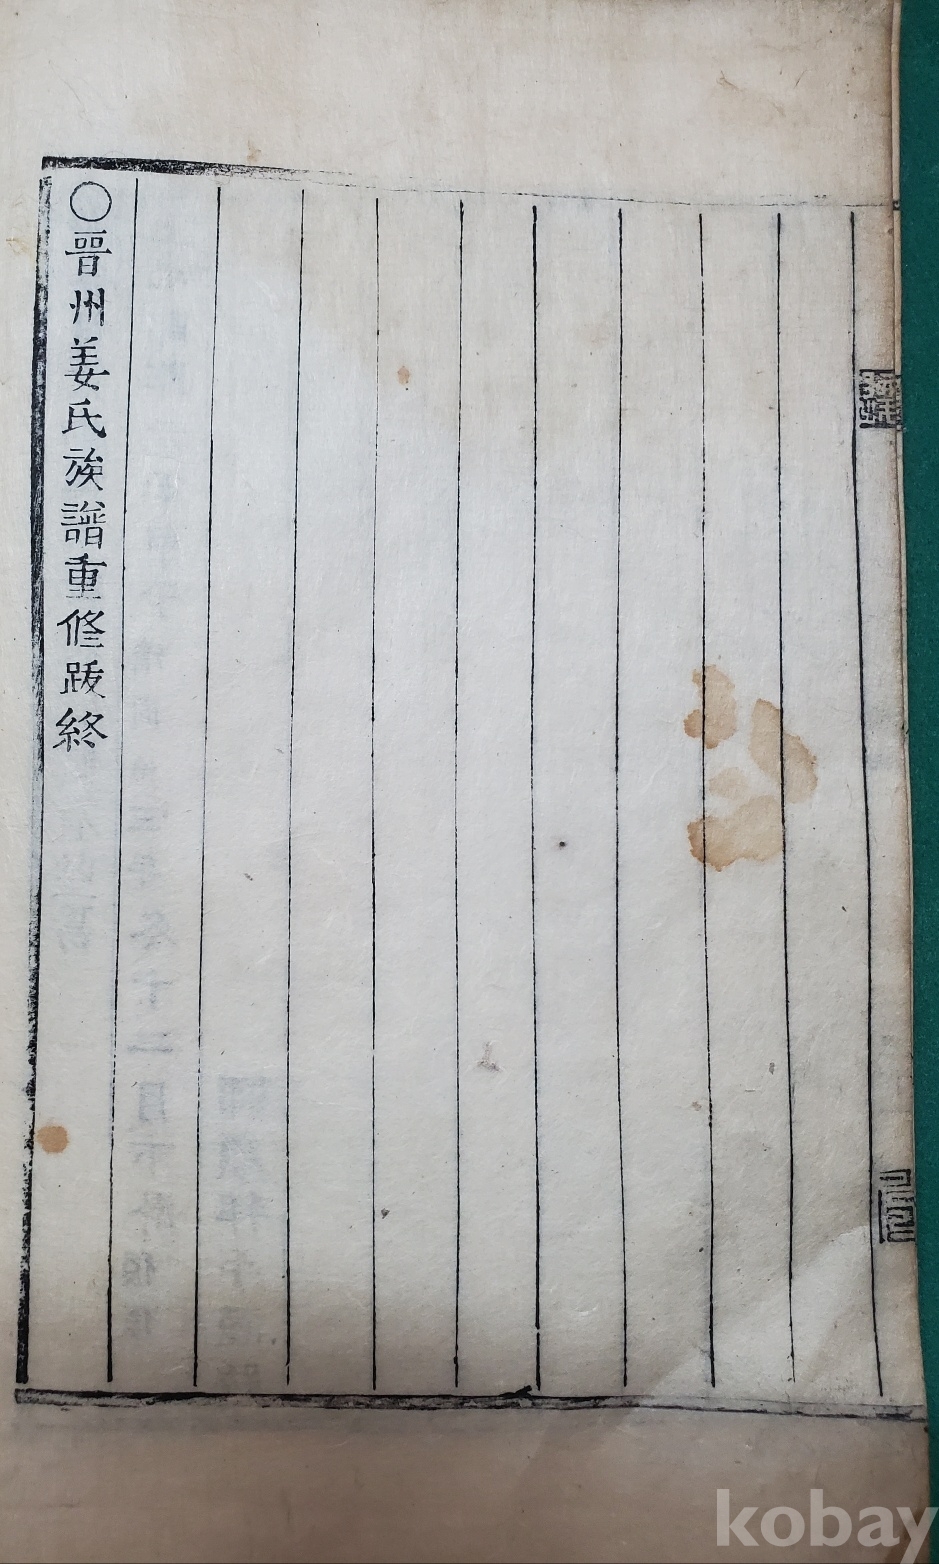 ○晉州姜氏族譜重修跋終
kobay